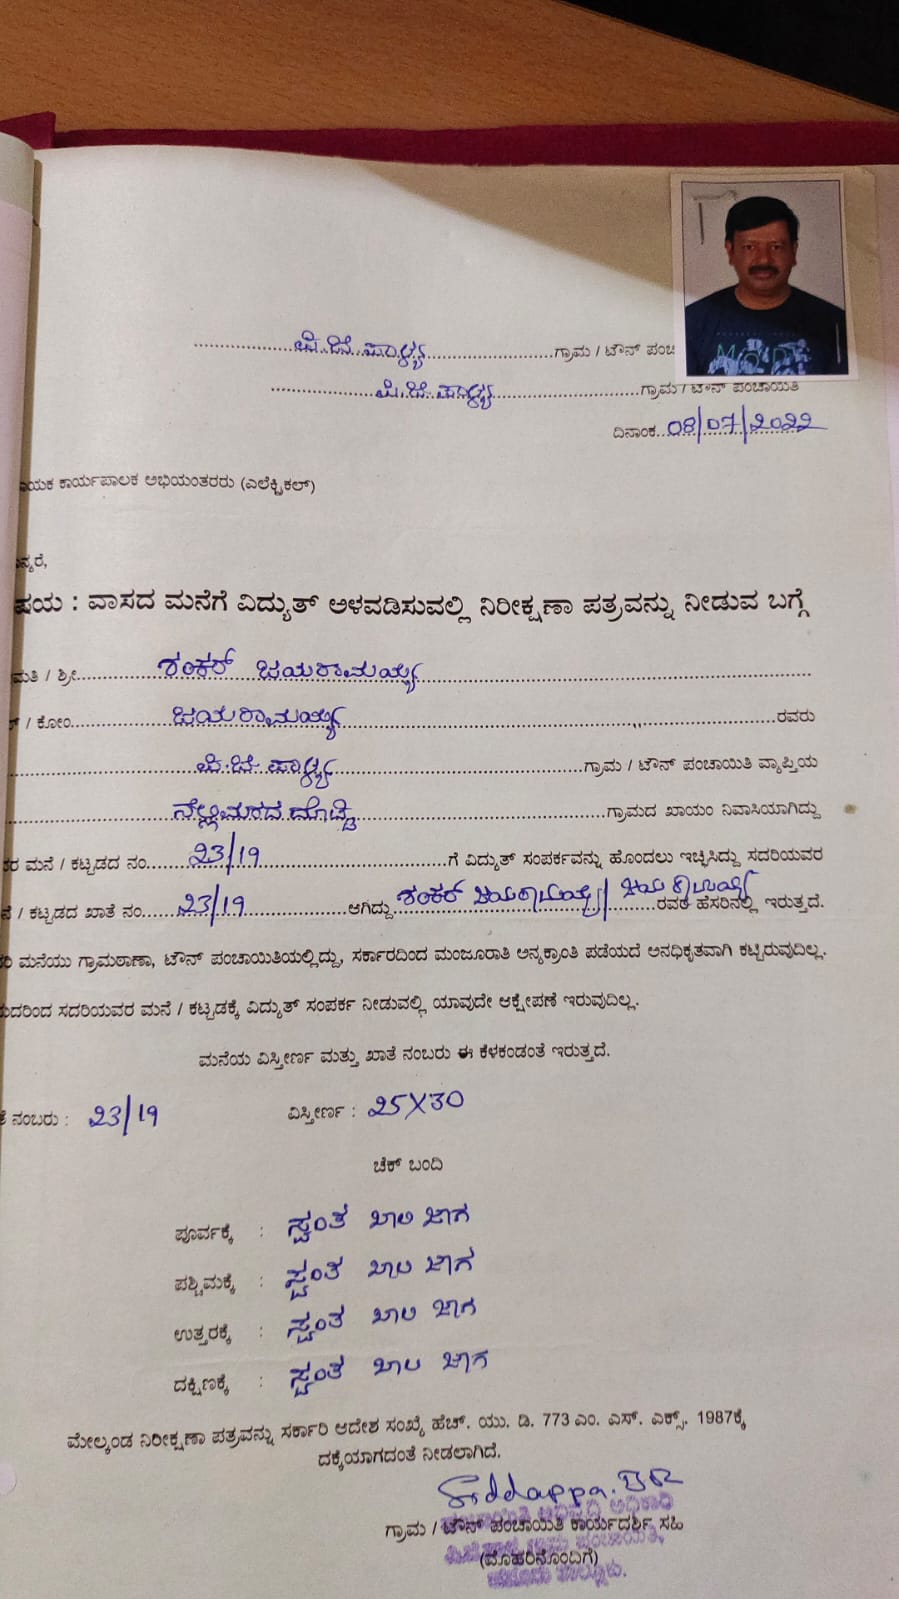 ಪಿ.ಜಿ.ಪಾಳ್ಯ ಗ್ರಾಮ / ಟೌನ್
ಪಿ.ಜಿ.ಪಾಳ್ಯ ಗ್ರಾಮ / ಟೌನ್ ಪಂಚಾಯಿತಿ
ದಿನಾಂಕ 08/07/2022
ಕಾರ್ಯಪಾಲಕ ಅಭಿಯಂತರರು (ಎಲೆಕ್ಟ್ರಿಕಲ್)
: ವಾಸದ ಮನೆಗೆ ವಿದ್ಯುತ್ ಅಳವಡಿಸುವಲ್ಲಿ ನಿರೀಕ್ಷಣಾ ಪತ್ರವನ್ನು ನೀಡುವ ಬಗ್ಗೆ
/ ಶ್ರೀ ಶಂಕರ್ ಜಯರಾಮಯ್ಯ
/ ಕೋಂ ಜಯರಾಮಯ್ಯ ರವರು
ಪಿ.ಜಿ.ಪಾಳ್ಯ ಗ್ರಾಮ / ಟೌನ್ ಪಂಚಾಯಿತಿ ವ್ಯಾಪ್ತಿಯ
ನೆಲ್ಲಿಮರದ ದೊಡ್ಡಿ ಗ್ರಾಮದ ಖಾಯಂ ನಿವಾಸಿಯಾಗಿದ್ದು
ಮನೆ / ಕಟ್ಟಡದ ನಂ. 23/19 ಗೆ ವಿದ್ಯುತ್ ಸಂಪರ್ಕವನ್ನು ಹೊಂದಲು ಇಚ್ಛಿಸಿದ್ದು ಸದರಿಯವರ
/ ಕಟ್ಟಡದ ಖಾತೆ ನಂ. 23/19 ಆಗಿದ್ದು ಶಂಕರ್ ಜಯರಾಮಯ್ಯ / ಜಯರಾಮಯ್ಯ ರವರ ಹೆಸರಿನಲ್ಲಿ ಇರುತ್ತದೆ.
ಮನೆಯು ಗ್ರಾಮಠಾಣಾ, ಟೌನ್ ಪಂಚಾಯಿತಿಯಲ್ಲಿದ್ದು, ಸರ್ಕಾರದಿಂದ ಮಂಜೂರಾತಿ ಅನ್ಯಕ್ರಾಂತಿ ಪಡೆಯದೆ ಅನಧಿಕೃತವಾಗಿ ಕಟ್ಟಿರುವುದಿಲ್ಲ.
ಸದರಿಯವರ ಮನೆ / ಕಟ್ಟಡಕ್ಕೆ ವಿದ್ಯುತ್ ಸಂಪರ್ಕ ನೀಡುವಲ್ಲಿ ಯಾವುದೇ ಆಕ್ಷೇಪಣೆ ಇರುವುದಿಲ್ಲ.
ಮನೆಯ ವಿಸ್ತೀರ್ಣ ಮತ್ತು ಖಾತೆ ನಂಬರು ಈ ಕೆಳಕಂಡಂತೆ ಇರುತ್ತದೆ.
ನಂಬರು : 23/19 ವಿಸ್ತೀರ್ಣ : 25X30
ಚೆಕ್ ಬಂದಿ
ಪೂರ್ವಕ್ಕೆ : ಸ್ವಂತ ಖಾಲಿ ಜಾಗ
ಪಶ್ಚಿಮಕ್ಕೆ : ಸ್ವಂತ ಖಾಲಿ ಜಾಗ
ಉತ್ತರಕ್ಕೆ : ಸ್ವಂತ ಖಾಲಿ ಜಾಗ
ದಕ್ಷಿಣಕ್ಕೆ : ಸ್ವಂತ ಖಾಲಿ ಜಾಗ
ಮೇಲ್ಕಂಡ ನಿರೀಕ್ಷಣಾ ಪತ್ರವನ್ನು ಸರ್ಕಾರಿ ಆದೇಶ ಸಂಖ್ಯೆ ಹೆಚ್. ಯು. ಡಿ. 773 ಎಂ. ಎಸ್. ಎಕ್ಸ್. 1987ಕ್ಕೆ
ದಕ್ಕೆಯಾಗದಂತೆ ನೀಡಲಾಗಿದೆ.
Siddappa.BR
ಗ್ರಾಮ / ಟೌನ್ ಪಂಚಾಯಿತಿ ಕಾರ್ಯದರ್ಶಿ ಸಹಿ
(ಮೊಹರಿನೊಂದಿಗೆ)